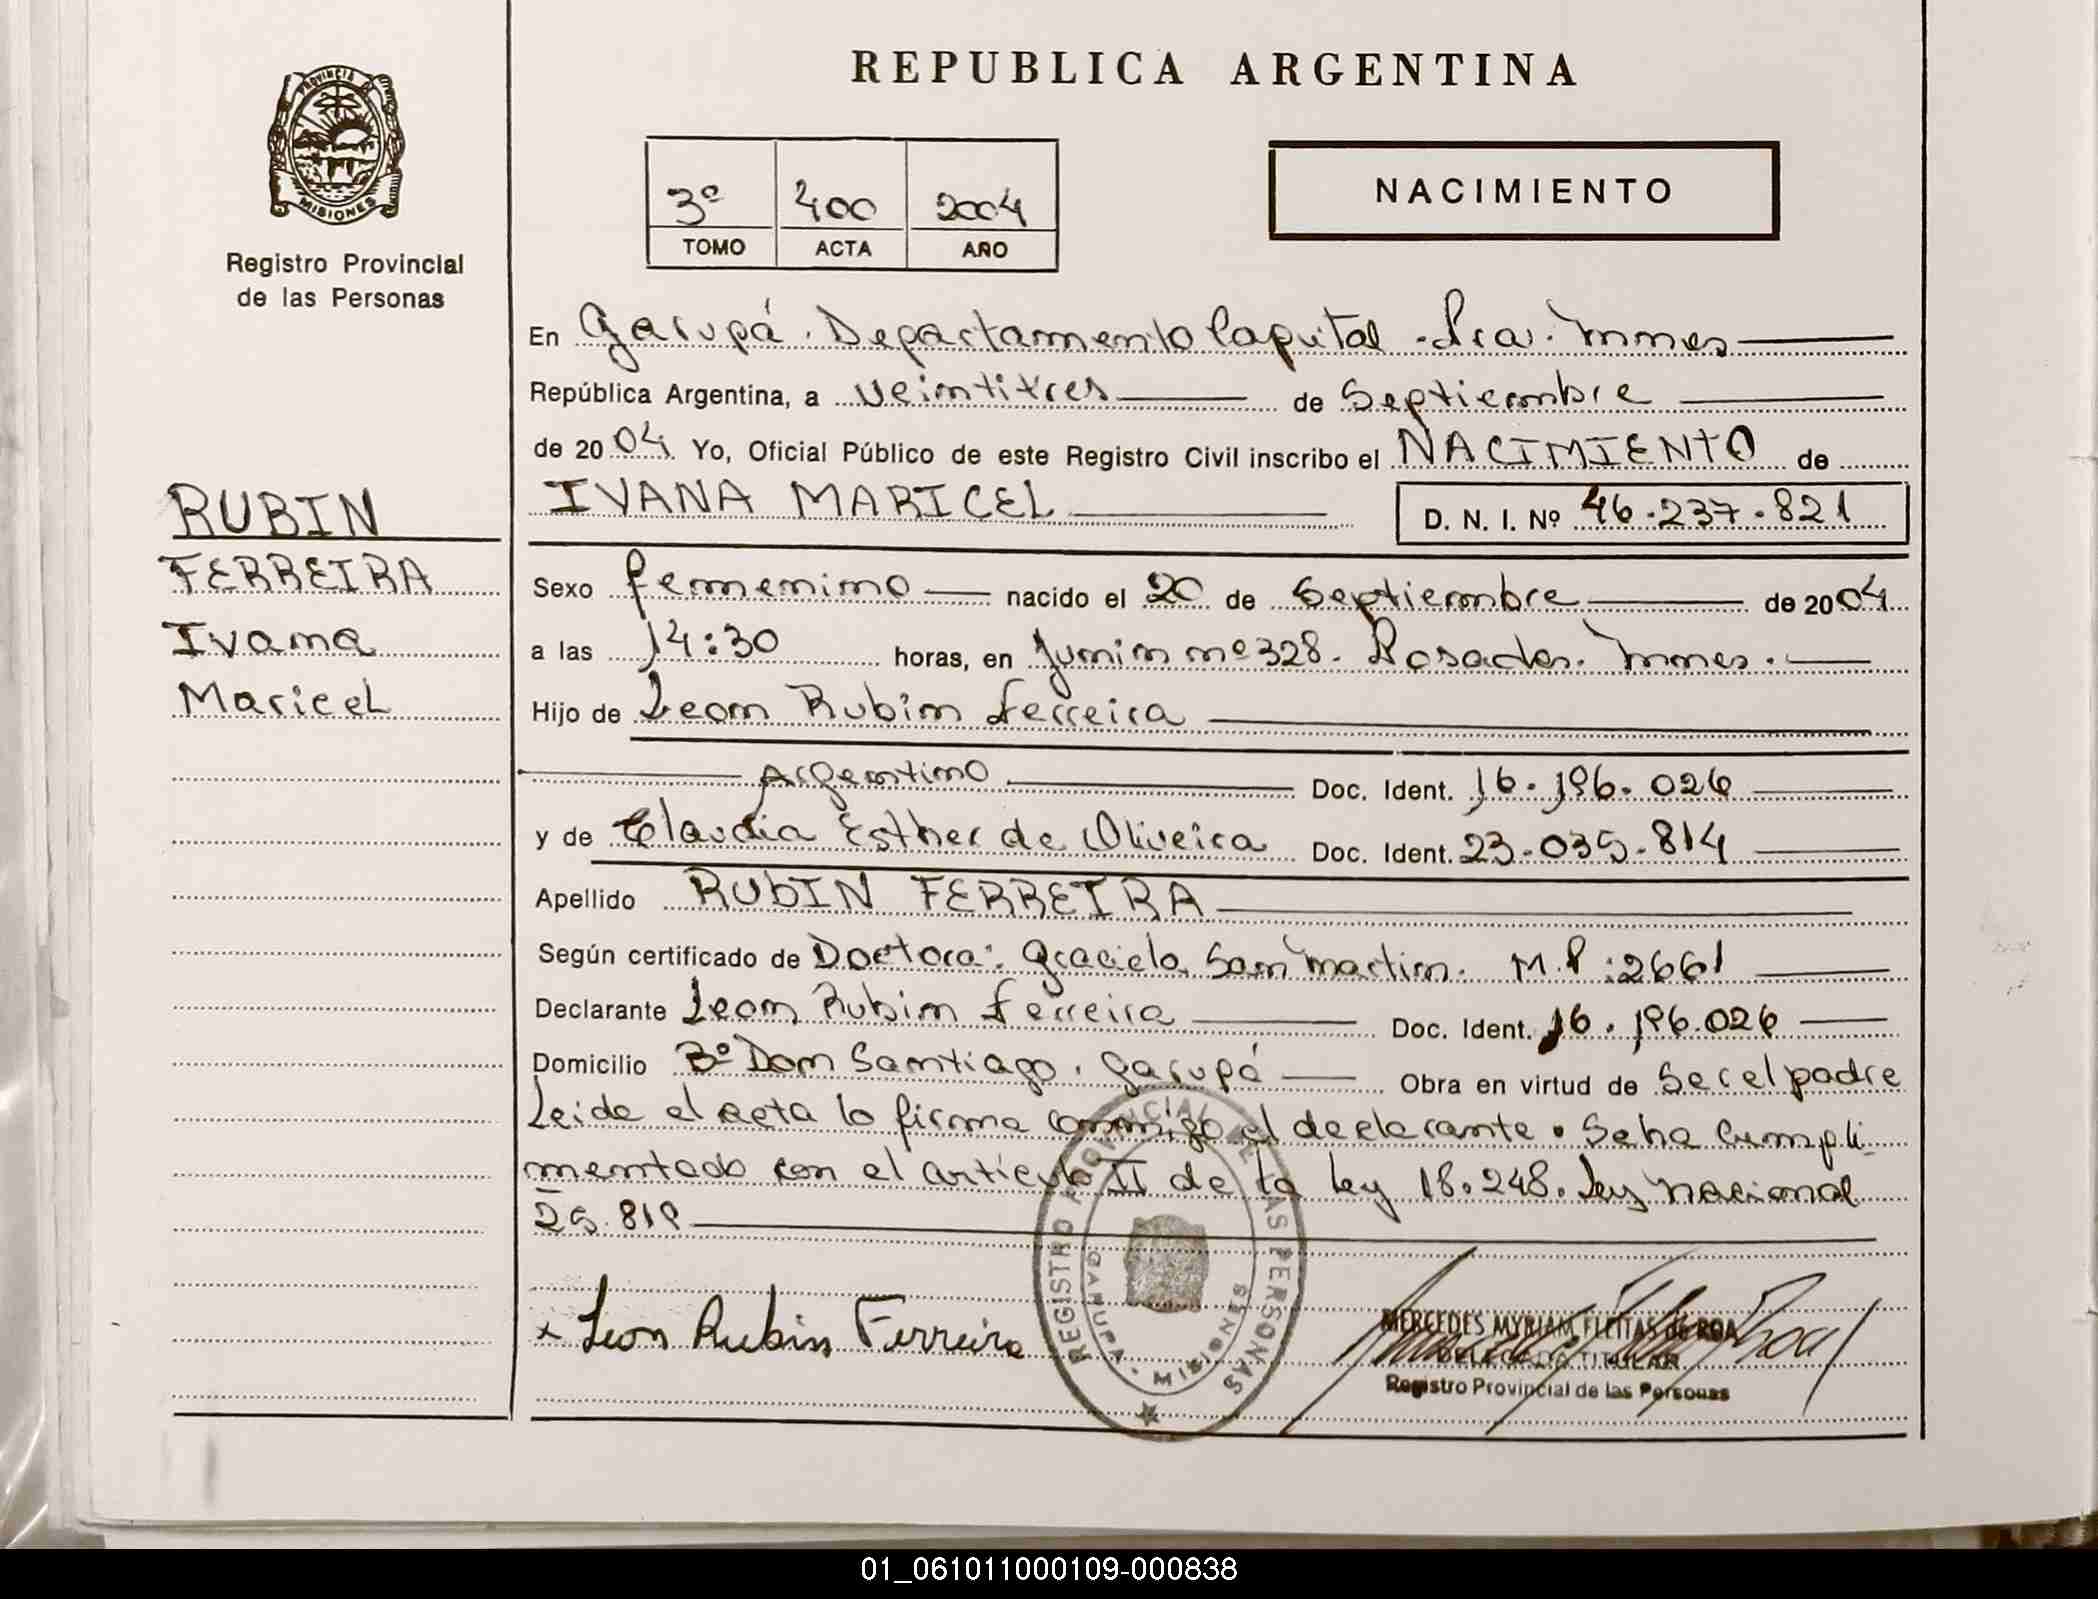 REPUBLICA ARGENTINA
PROVINCIA D
MISIONES
Registro Provincial
de las Personas
3º 400 2004
TOMO ACTA AÑO
NACIMIENTO
En Garupá. Departamento Capital. Pcia. Mnes
República Argentina, a veintitres de Septiembre
de 2004. Yo, Oficial Público de este Registro Civil inscribo el NACIMIENTO de
IVANA MARICEL D. N. I. Nº 46.237.821
RUBIN
FERREIRA
Ivana
Maricel
Sexo femenino nacido el 20 de Septiembre de 2004
a las 14:30 horas, en Junin nº 328. Posadas. Mnes.
Hijo de Leon Rubin Ferreira
Argentino Doc. Ident. 16.196.026
y de Claudia Esther de Oliveira Doc. Ident. 23.035.814
Apellido RUBIN FERREIRA
Según certificado de Doctora: Graciela San Martin. M.P:2661
Declarante Leon Rubin Ferreira Doc. Ident. 16.196.026
Domicilio Bº Don Santiago. Garupá Obra en virtud de Ser el padre
Leida el acta la firma conmigo el declarante. Se ha cumpli
mentado con el artículo II de la ley 18.248. Ley nacional
25.819
x Leon Rubin Ferreira
REGISTRO PROVINCIAL DE LAS PERSONAS
GARUPA - MISIONES
MERCEDES MYRIAM FLEITAS de ROA
DELEGADO TITULAR
Registro Provincial de las Personas
01_061011000109-000838